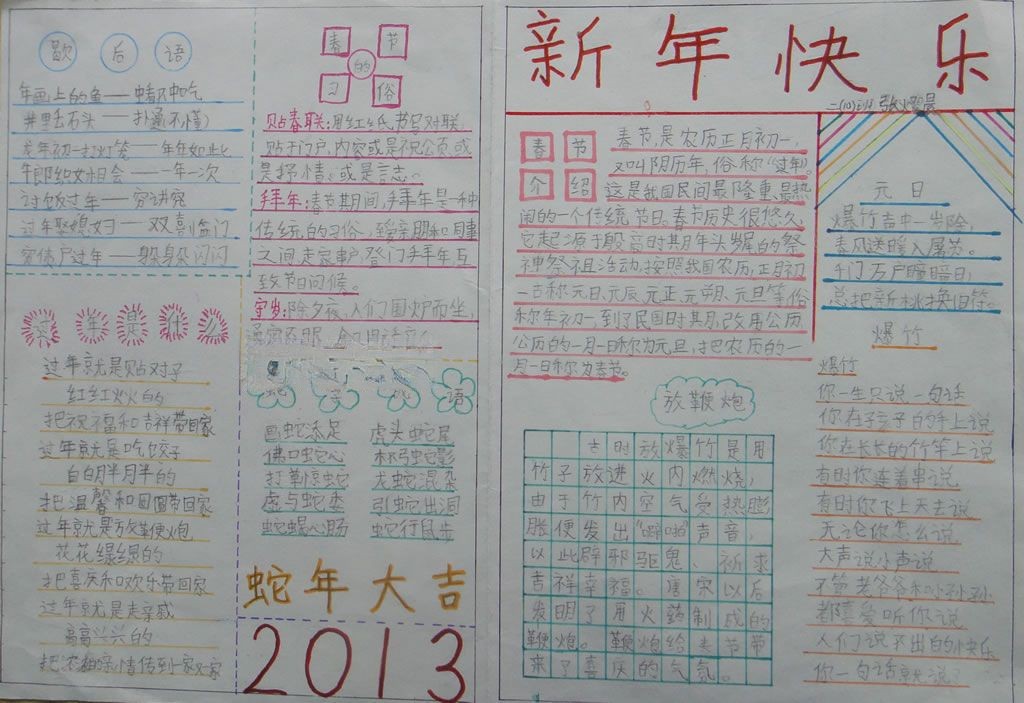 歇后语
年画上的鱼——中吃
井里丢石头——扑通(不懂)
龙年初一打灯笼——年年如此
牛郎织女相会——一年一次
讨饭过年——穷讲究
过年娶媳妇——双喜临门
穷债户过年——躲躲闪闪
春节的习俗
贴春联:用红纸书写对联,
贴于门户,内容或是祝公页,或
是抒情。或是言志。
拜年:春节期间,拜年是一种
传统的习俗,给亲朋和同事
之间走家串户,登门拜年互
致节日问候。
守岁:除夕夜,人们围炉而坐,
过年是什么
过年就是贴对子
红红火火的
把祝福和吉祥带回家
过年就是吃饺子
白白胖胖的
把温馨和团圆带回家
过年就是放鞭炮
花花绿绿的
把喜庆和欢乐带回家
过年就是走亲戚
高高兴兴的
把浓浓的亲情传到家家
成语
画蛇添足 虎头蛇尾
佛口蛇心 杯弓蛇影
打草惊蛇 龙蛇混杂
虚与蛇委 引蛇出洞
蛇蝎心肠 蛇行鼠步
蛇年大吉
2013
新年快乐
春节介绍
春节,是农历正月初一,
又叫阴历年,俗称“过年”。
这是我国民间最隆重、最热
闹的一个传统节日。春节历史很悠久,
它起源于殷商时期年头岁尾的祭
神祭祖活动,按照我国农历,正月初
一古称元日、元辰、元正、元朔、元旦等,俗
称年初一,到了民国时期,改用公历,
公历的一月一日称为元旦,把农历的一
月一日称为春节。
元日
爆竹声中一岁除,
春风送暖入屠苏。
千门万户曈曈日,
总把新桃换旧符。
放鞭炮
古时放爆竹是用
竹子放进火内燃烧,
由于竹内空气受热膨
胀便发出“噼啪”声音,
以此辟邪驱鬼、祈求
吉祥幸福。唐宋以后
发明了用火药制成的
鞭炮。鞭炮给春节带
来了喜庆的气氛。
爆竹
爆竹
你一生只说一句话
你在孩子的手上说
你在长长的竹竿上说
有时你连着串说
有时你飞上天去说
无论你怎么说
大声说小声说
不管老爷爷和小孙孙
都喜爱听你说
人们说不出的快乐
你一句话就说了